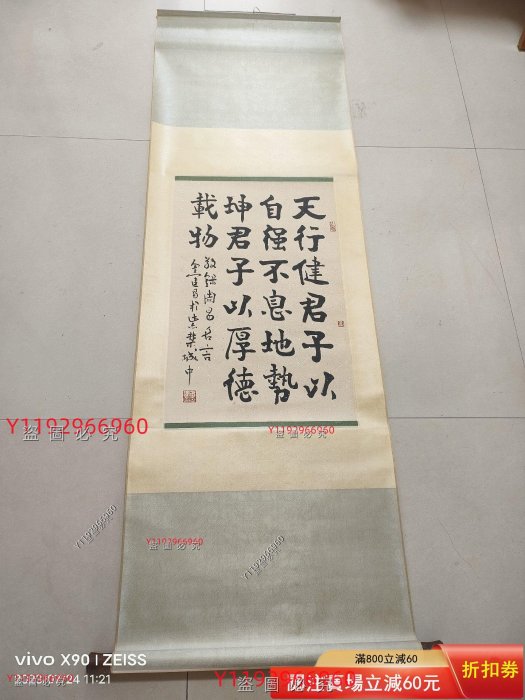 天行健君子以
自强不息地勢
坤君子以厚德
載物
名言
於紫禁城中
Y1192966960
盜圖必究
Y1192966960
盜圖必究
Y1192966960
盜圖必究
Y1192966960
盜圖必究
Y1192966960
盜圖必究
vivo X90 | ZEISS
2023.07.24 11:21
Y1192966960
滿800立減60
折扣券
認證賣場立減60元